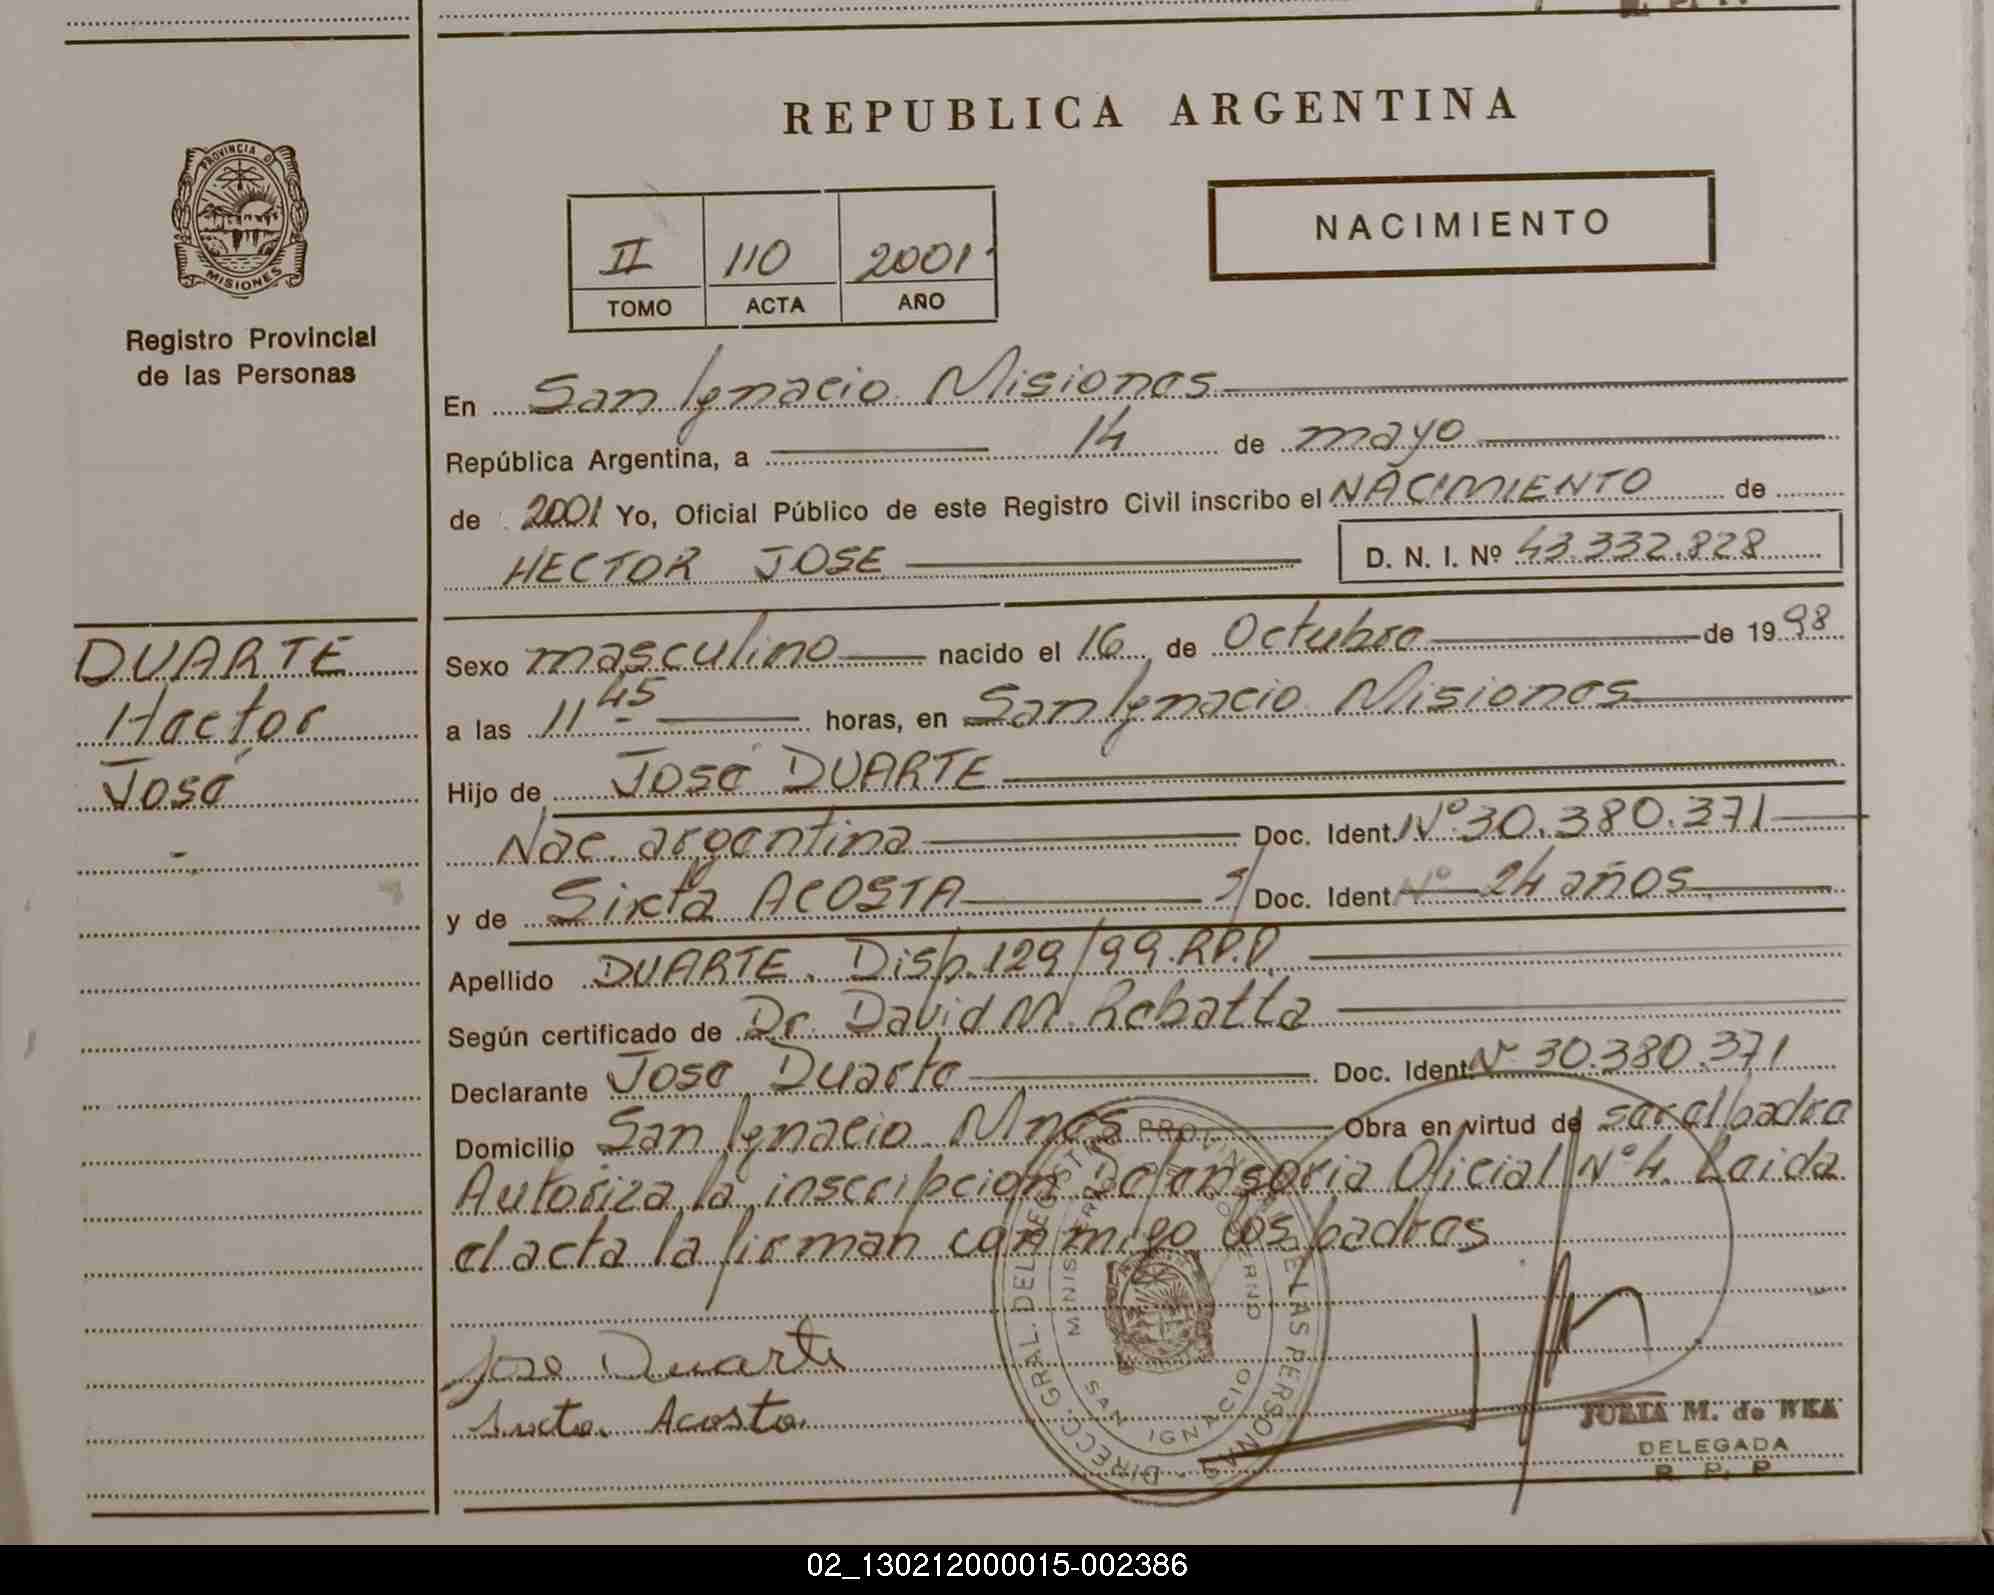 REPUBLICA ARGENTINA
PROVINCIA DE
MISIONES
Registro Provincial
de las Personas
II 110 2001
TOMO ACTA AÑO
NACIMIENTO
En San Ignacio Misiones
República Argentina, a 14 de mayo
de 2001 Yo, Oficial Público de este Registro Civil inscribo el NACIMIENTO de
HECTOR JOSE D. N. I. Nº 43.332.828
DUARTE
Hector
José
Sexo masculino nacido el 16 de Octubre de 1998
a las 11 45 horas, en San Ignacio Misiones
Hijo de Jose DUARTE
Nac. argentina Doc. Ident. Nº 30.380.371
y de Sixta ACOSTA S/ Doc. Ident. Nº 24 años
Apellido DUARTE. Disp. 129/99.R.P.P.
Según certificado de Dr. David M. Rebatta
Declarante Jose Duarte Doc. Ident. Nº 30.380.371
Domicilio San Ignacio Mnes Obra en virtud de ser el padre
Autoriza la inscripcion Defensoria Oficial Nº 4. Leida
el acta la firman conmigo los padres
Jose Duarte
Sixta Acosta
DIRECC. GRAL. DEL REGISTRO PROVINCIAL DE LAS PERSONAS
MINISTERIO DE GOBIERNO
SAN IGNACIO
JULIA M. de WKA
DELEGADA
R. P. P
02_130212000015-002386